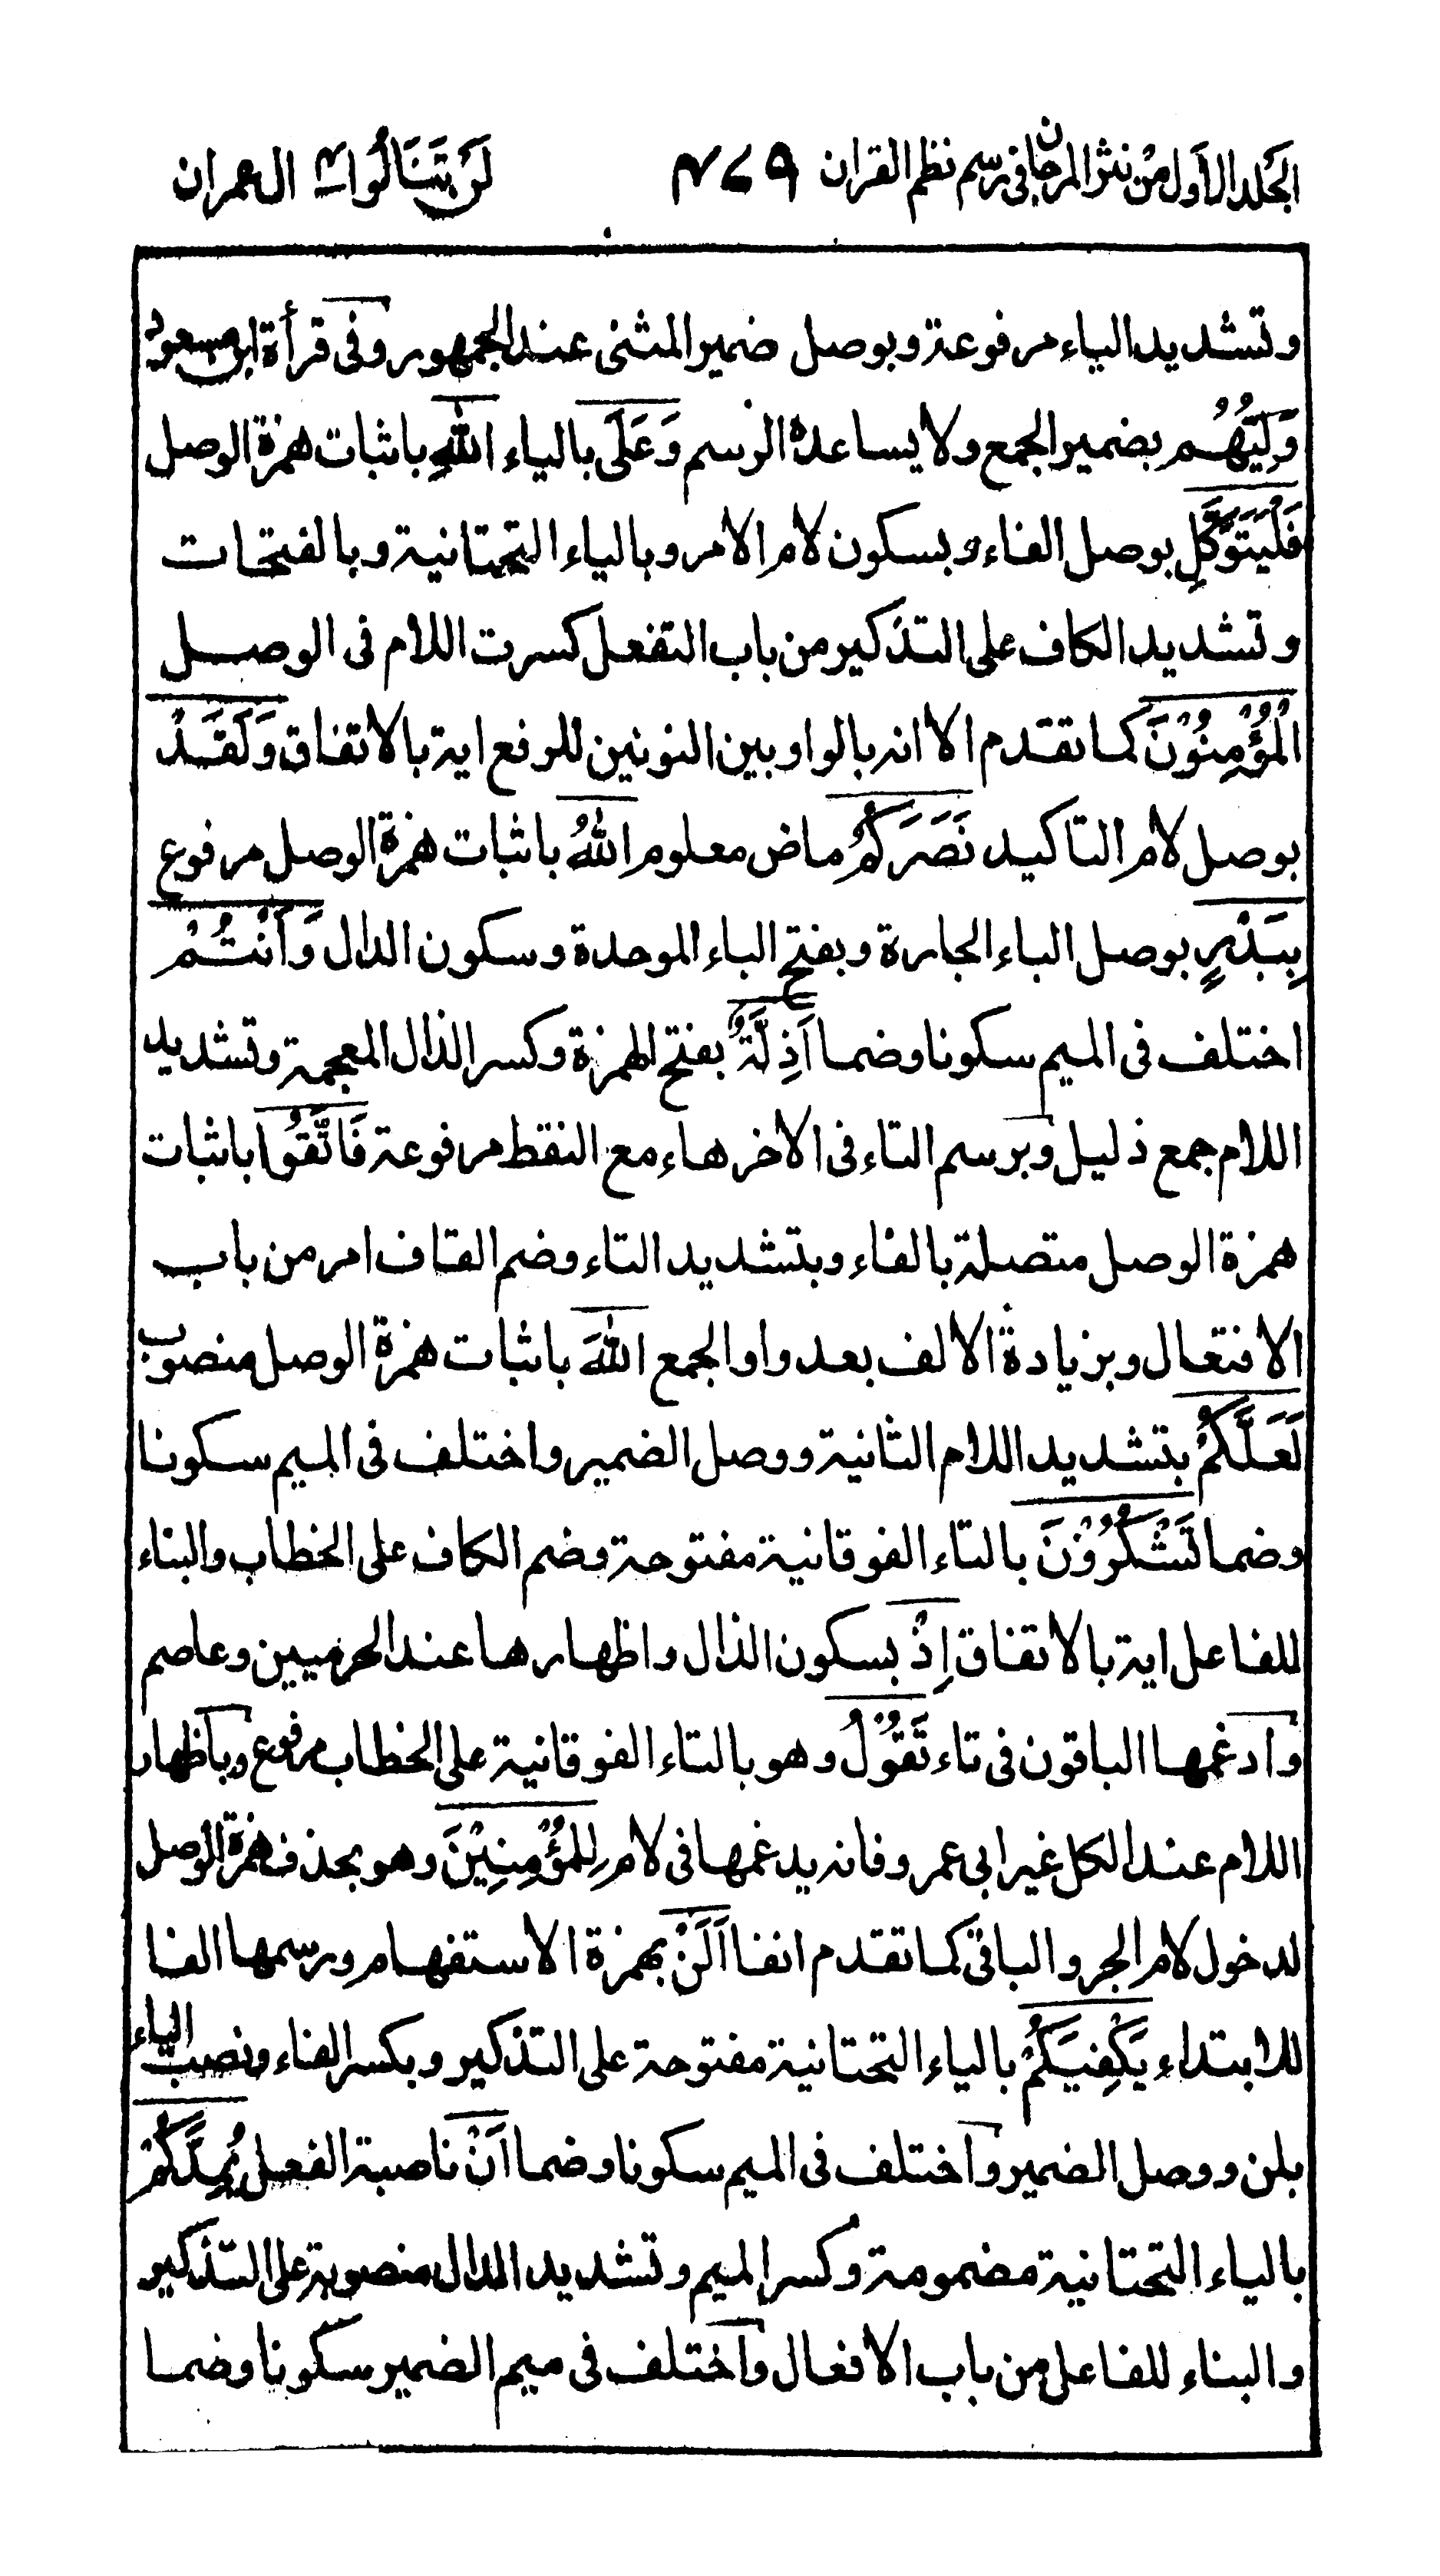 الجلد الاول من نثر المرجان فى رسم نظم القران ٤٧٩ لَنْ تَنَالُوا ٤ ال عمران
وتشديد الياء مرفوعة وبوصل ضمير المثنى عند الجمهور وفى قرأة ابن مسعود
وَلِيُّهُم بضمير الجمع ولا يساعده الرسم وَعَلَى بالياء اللّٰهِ باثبات همزة الوصل
فَلْيَتَوَكَّلِ بوصل الفاء وبسكون لام الامر وبالياء التحتانية وبالفتحات
وتشديد الكاف على التذكير من باب التفعل كسرت اللام فى الوصل
الْمُؤْمِنُوْنَ كما تقدم الا انه بالواو بين النونين للرفع اية بالاتفاق وَلَقَدْ
بوصل لام التاكيد نَصَرَكُمُ ماض معلوم اللّٰهُ باثبات همزة الوصل مرفوع
بِبَدْرٍ بوصل الباء الجارة وبفتح الباء الموحدة وسكون الدال وَاَنْتُمْ
اختلف فى الميم سكونا وضما اَذِلَّةٌ بفتح الهمزة وكسر الذال المعجمة وتشديد
اللام جمع ذليل وبرسم التاء فى الاخر هاء مع النقط مرفوعة فَاتَّقُوا باثبات
همزة الوصل متصلة بالفاء وبتشديد التاء وضم القاف امر من باب
الافتعال وبزيادة الالف بعد واو الجمع اللّٰهَ باثبات همزة الوصل منصوب
لَعَلَّكُمْ بتشديد اللام الثانية ووصل الضمير واختلف فى الميم سكونا
وضما تَشْكُرُوْنَ بالتاء الفوقانية مفتوحة وضم الكاف على الخطاب والبناء
للفاعل اية بالاتفاق اِذْ بسكون الذال واظهارها عند الحرميين وعاصم
وادغمها الباقون فى تاء تَقُوْلُ وهو بالتاء الفوقانية على الخطاب مرفوع وباظهار
اللام عند الكل غير ابى عمرو فانه يدغمها فى لام لِلْمُؤْمِنِيْنَ وهو بحذف همزة الوصل
لدخول لام الجر والباقى كما تقدم انفا اَلَنْ بهمزة الاستفهام ورسمها الفا
للابتداء يَكْفِيَكُمْ بالياء التحتانية مفتوحة على التذكير وبكسر الفاء ونصب الياء
بلن ووصل الضمير واختلف فى الميم سكونا وضما اَنْ ناصبة الفعل يُمِدَّكُمْ
بالياء التحتانية مضمومة وكسر الميم وتشديد الدال منصوبة على التذكير
والبناء للفاعل من باب الافعال واختلف فى ميم الضمير سكونا وضما